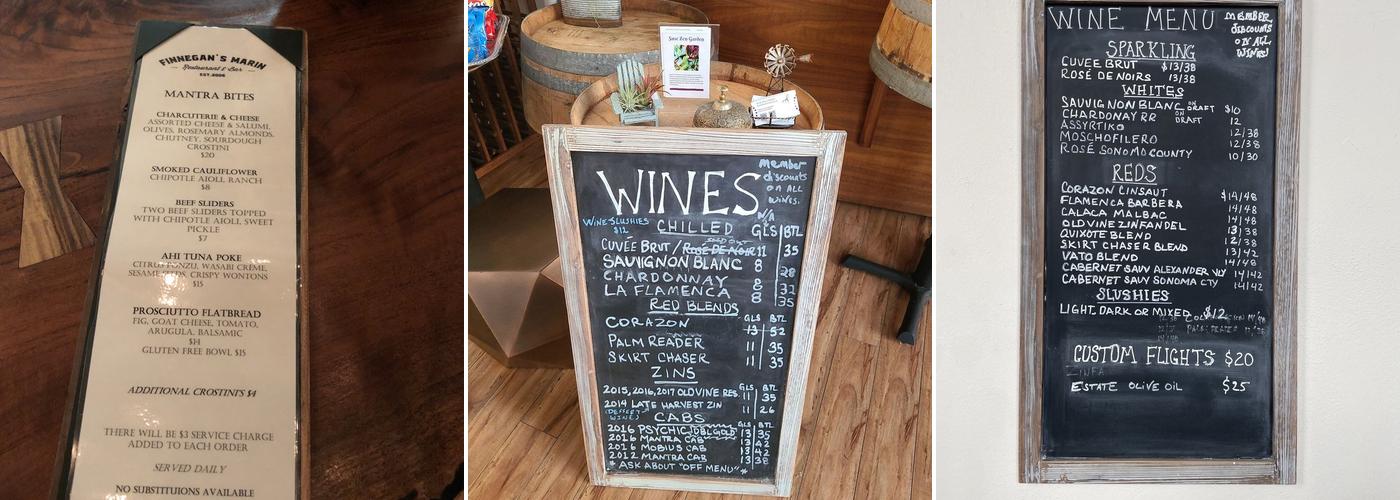 FINNEGAN'S MARIN
Restaurant & Bar
EST. 2006
MANTRA BITES
CHARCUTERIE & CHEESE
ASSORTED CHEESE & SALUMI,
OLIVES, ROSEMARY ALMONDS,
CHUTNEY, SOURDOUGH
CROSTINI
$20
SMOKED CAULIFLOWER
CHIPOTLE AIOLI, RANCH
$8
BEEF SLIDERS
TWO BEEF SLIDERS TOPPED
WITH CHIPOTLE AIOLI, SWEET
PICKLE
$7
AHI TUNA POKE
CITRUS PONZU, WASABI CRÈME,
SESAME SEEDS, CRISPY WONTONS
$15
PROSCIUTTO FLATBREAD
FIG, GOAT CHEESE, TOMATO,
ARUGULA, BALSAMIC
$14
GLUTEN FREE BOWL $15
ADDITIONAL CROSTINI $4
THERE WILL BE $3 SERVICE CHARGE
ADDED TO EACH ORDER
SERVED DAILY
NO SUBSTITUIONS AVAILABLE
Save Zen Garden
WINES
member
discounts
on ALL
wines.
N/A
WINE SLUSHIES
$12
CHILLED GLS BTL
SOLD OUT
CUVÉE BRUT / ROSÉ DE NOIR 11 35
SAUVIGNON BLANC 8 28
CHARDONNAY 8 32
LA FLAMENCA 8 35
RED BLENDS GLS BTL
CORAZON 13 52
PALM READER 11 35
SKIRT CHASER 11 35
ZINS
GLS BTL
2015, 2016, 2017 OLD VINE RES. 11 35
2014 LATE HARVEST ZIN 11 26
(DESSERT WINE)
CABS GLS BTL
2016 PSYCHIC DBL GOLD 13 35
2016 MANTRA CAB 13 42
2016 MOBIUS CAB 13 42
2012 MANTRA CAB 13 38
* ASK ABOUT "OFF MENU" *
WINE MENU
MEMBER
DISCOUNTS
ON ALL
WINES!
SPARKLING
CUVEE BRUT $13/38
ROSÉ DE NOIRS 13/38
WHITES
SAUVIGNON BLANC ON DRAFT $10
CHARDONAY RR ON DRAFT 12
ASSYRTIKO 12/38
MOSCHOFILERO 12/38
ROSÉ SONOMO COUNTY 10/30
REDS
CORAZON CINSAUT $14/48
FLAMENCA BARBERA 14/48
CALACA MALBAC 14/48
OLD VINE ZINFANDEL 13/38
QUIXOTE BLEND 12/38
SKIRT CHASER BLEND 13/42
VATO BLEND 14/48
CABERNET SAUV ALEXANDER VLY 14/42
CABERNET SAUV SONOMA CTY 14/42
SLUSHIES
LIGHT, DARK OR MIXED $12
CUSTOM FLIGHTS $20
ZINFA
ESTATE OLIVE OIL $25